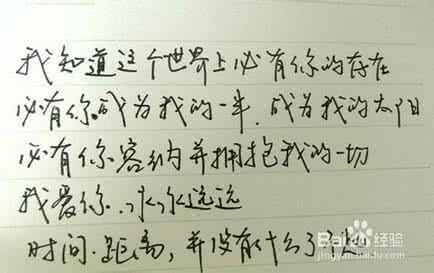 我知道这个世界上必有你的存在
必有你.成为我的一半.成为我的太阳
必有你容纳并拥抱我的一切
我爱你.永永远远
时间.距离,并没有什么了不起
Baidu经验
jingyan.baidu.com